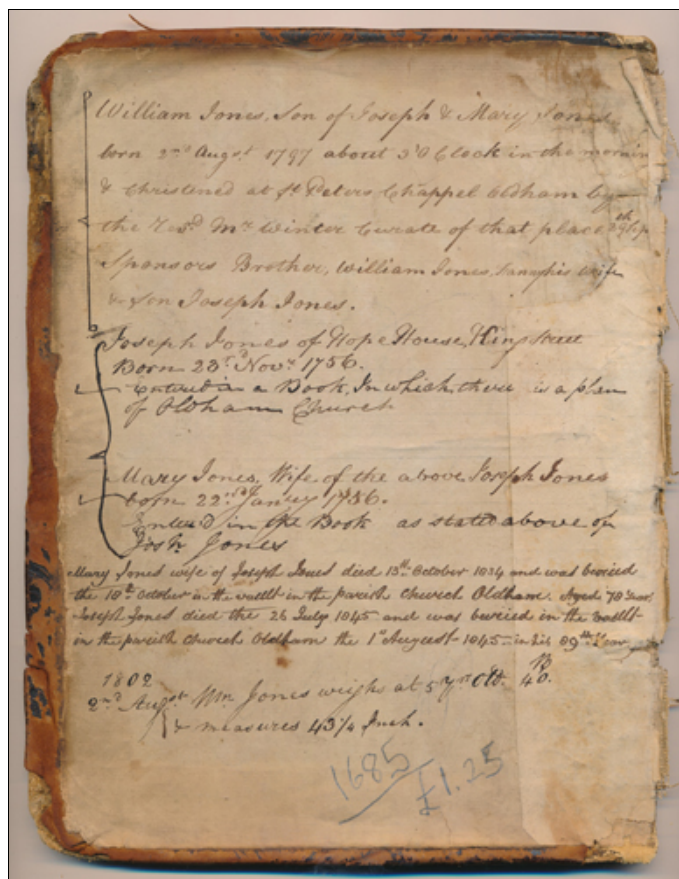 William Jones, Son of Joseph & Mary Jones
born 2nd Augst 1797 about 3 O Clock in the mornin
& Christened at St Peters Chappel Oldham by
the Revd Mr Winter Curate of that place 29th Sep
Sponsors Brother, William Jones, his wife
& son Joseph Jones.
Joseph Jones of Hope House, King Street
Born 23rd Novr 1756.
Entered in a Book, In which there is a plan
of Oldham Church
Mary Jones, Wife of the above Joseph Jones
born 22nd Janey 1756.
Entered in the Book as stated above of
Josh Jones
Mary Jones wife of Joseph Jones died 13th October 1834 and was beried
the 18th October in the vallt in the parish Cherch Oldham. Aged 78 Years
Joseph Jones died the 26 July 1845 and was beried in the vallt
in the parish Cherch Oldham the 1st Augest 1845 in his 89th Year
1802 lb
2nd Augst Wm Jones weighs at 5 yrs Old. 40.
& measures 43 1/4 Inch.
1685
£1.25